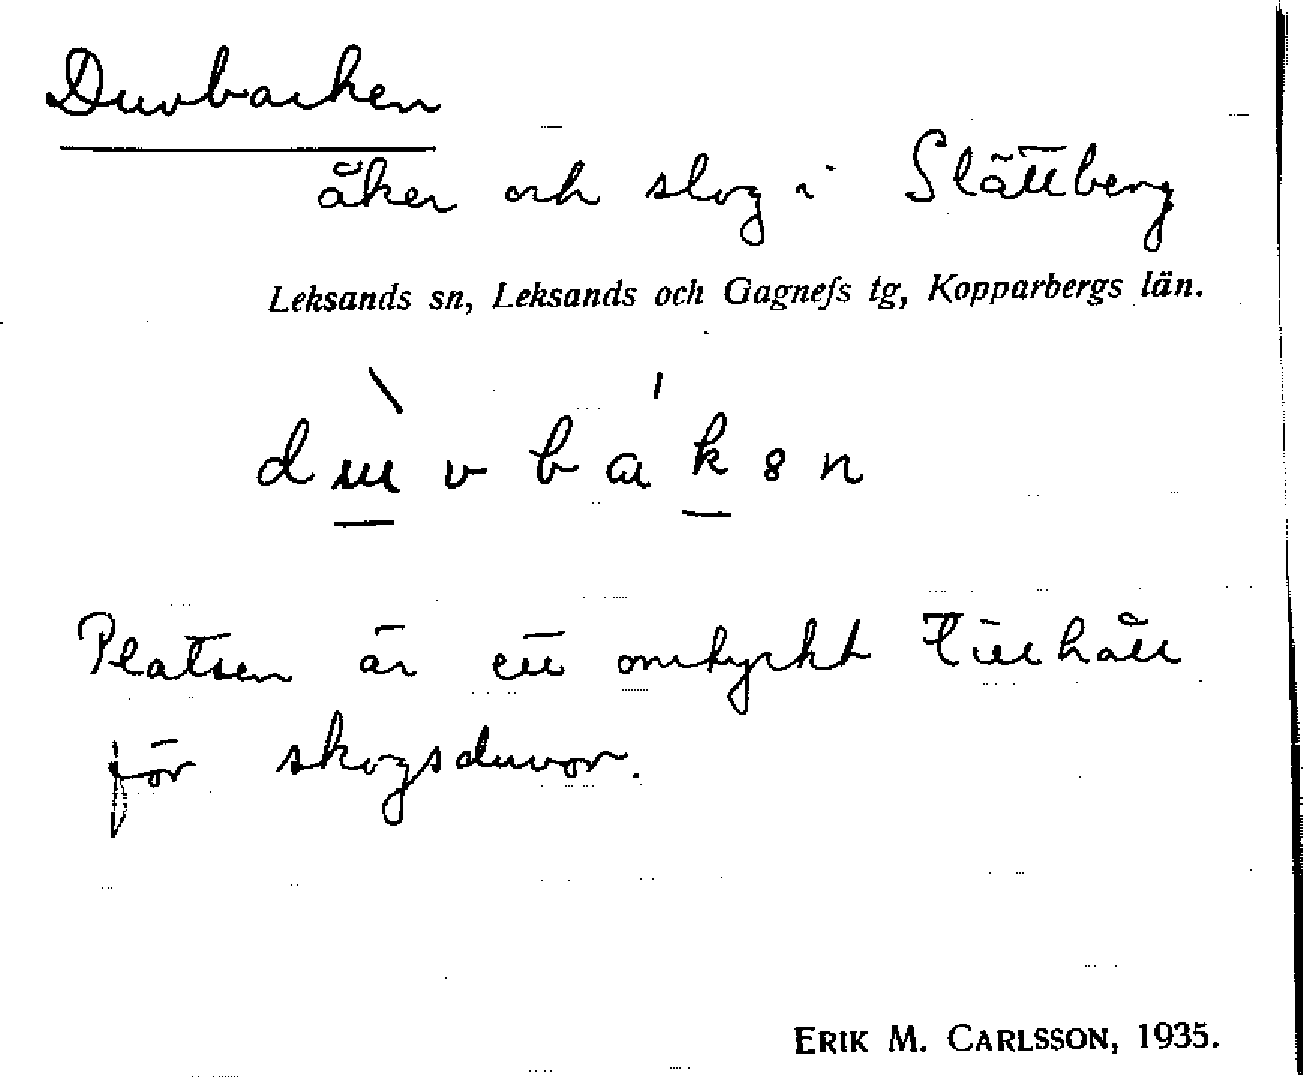 Duvbacken
åker och slog i Slättberg
Leksands sn, Leksands och Gagnefs tg, Kopparbergs län.
Platsen är ett omtyckt tillhåll
för skogsduvor.
ERIK M. CARLSSON, 1935.